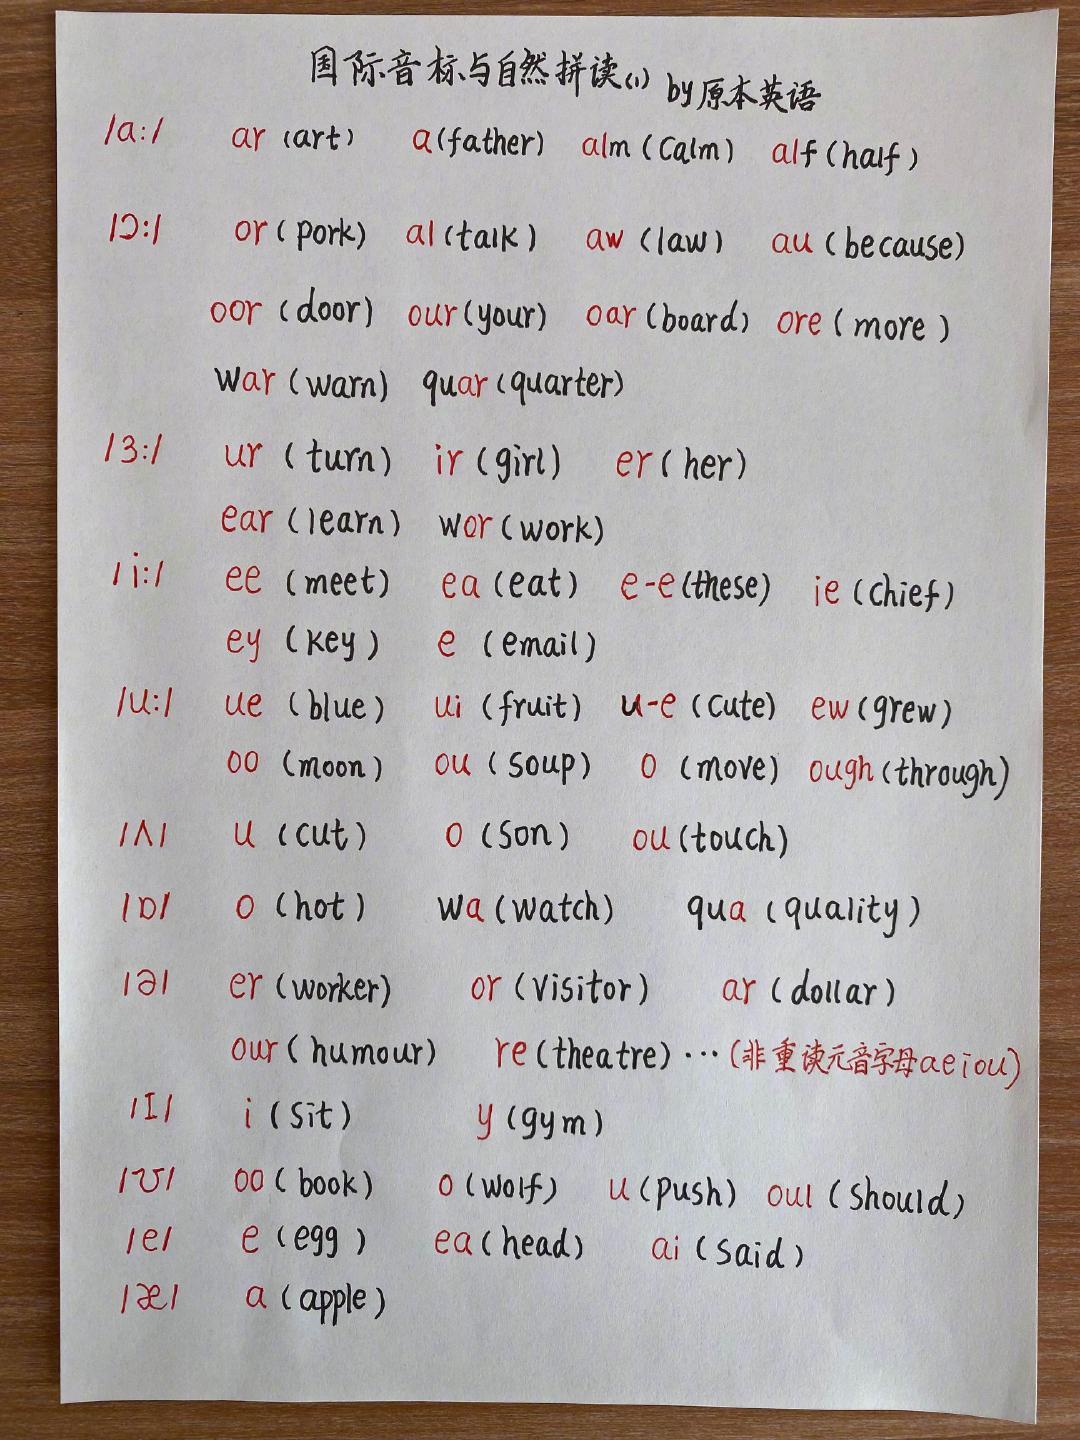 国际音标与自然拼读(1) by原本英语
/a:/ ar (art) a(father) alm (Calm) alf (half)
/ɔ:/ or (pork) al (talk) aw (law) au (because)
oor (door) our (your) oar (board) ore (more)
war (warn) quar (quarter)
/ɜ:/ ur (turn) ir (girl) er (her)
ear (learn) wor (work)
/i:/ ee (meet) ea (eat) e-e (these) ie (chief)
ey (key) e (email)
/u:/ ue (blue) ui (fruit) u-e (cute) ew (grew)
oo (moon) ou (soup) o (move) ough (through)
/ʌ/ u (cut) o (son) ou (touch)
/ɒ/ o (hot) wa (watch) qua (quality)
/ə/ er (worker) or (visitor) ar (dollar)
our (humour) re (theatre) ··· (非重读元音字母aeiou)
/ɪ/ i (sit) y (gym)
/ʊ/ oo (book) o (wolf) u (push) oul (should)
/e/ e (egg) ea (head) ai (said)
/æ/ a (apple)